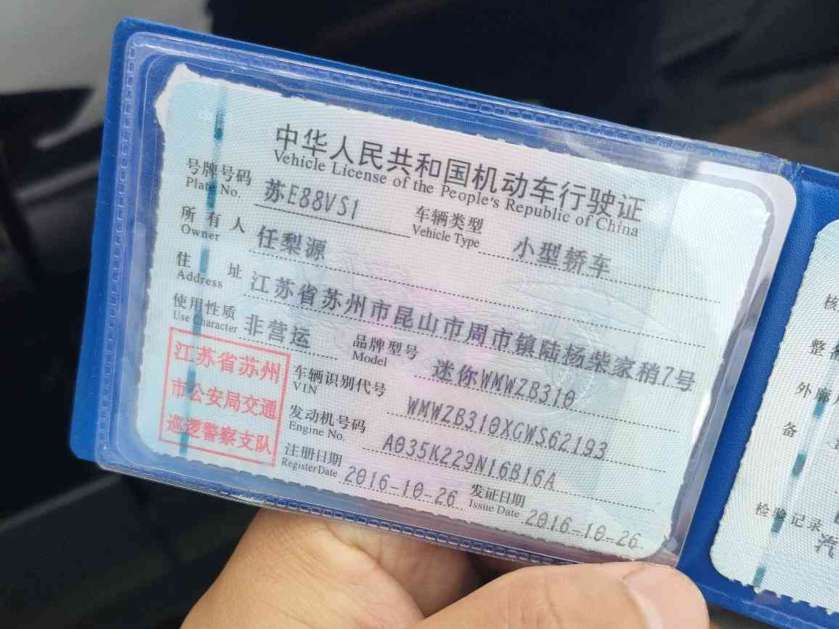 中华人民共和国机动车行驶证
Vehicle License of the People's Republic of China
号牌号码 苏E88VS1 车辆类型 小型轿车
Plate No. Vehicle Type
所有人 任梨源
Owner
住址 江苏省苏州市昆山市周市镇陆杨柴家稍7号
Address
使用性质 非营运 品牌型号 迷你WMWZB310
Use Character Model
江苏省苏州
市公安局交通
巡逻警察支队
车辆识别代号 WMWZB310XGWS62193
VIN
发动机号码 A035K229N16B16A
Engine No.
注册日期 2016-10-26 发证日期 2016-10-26
Register Date Issue Date
核
整
外
备
检验记录
汽